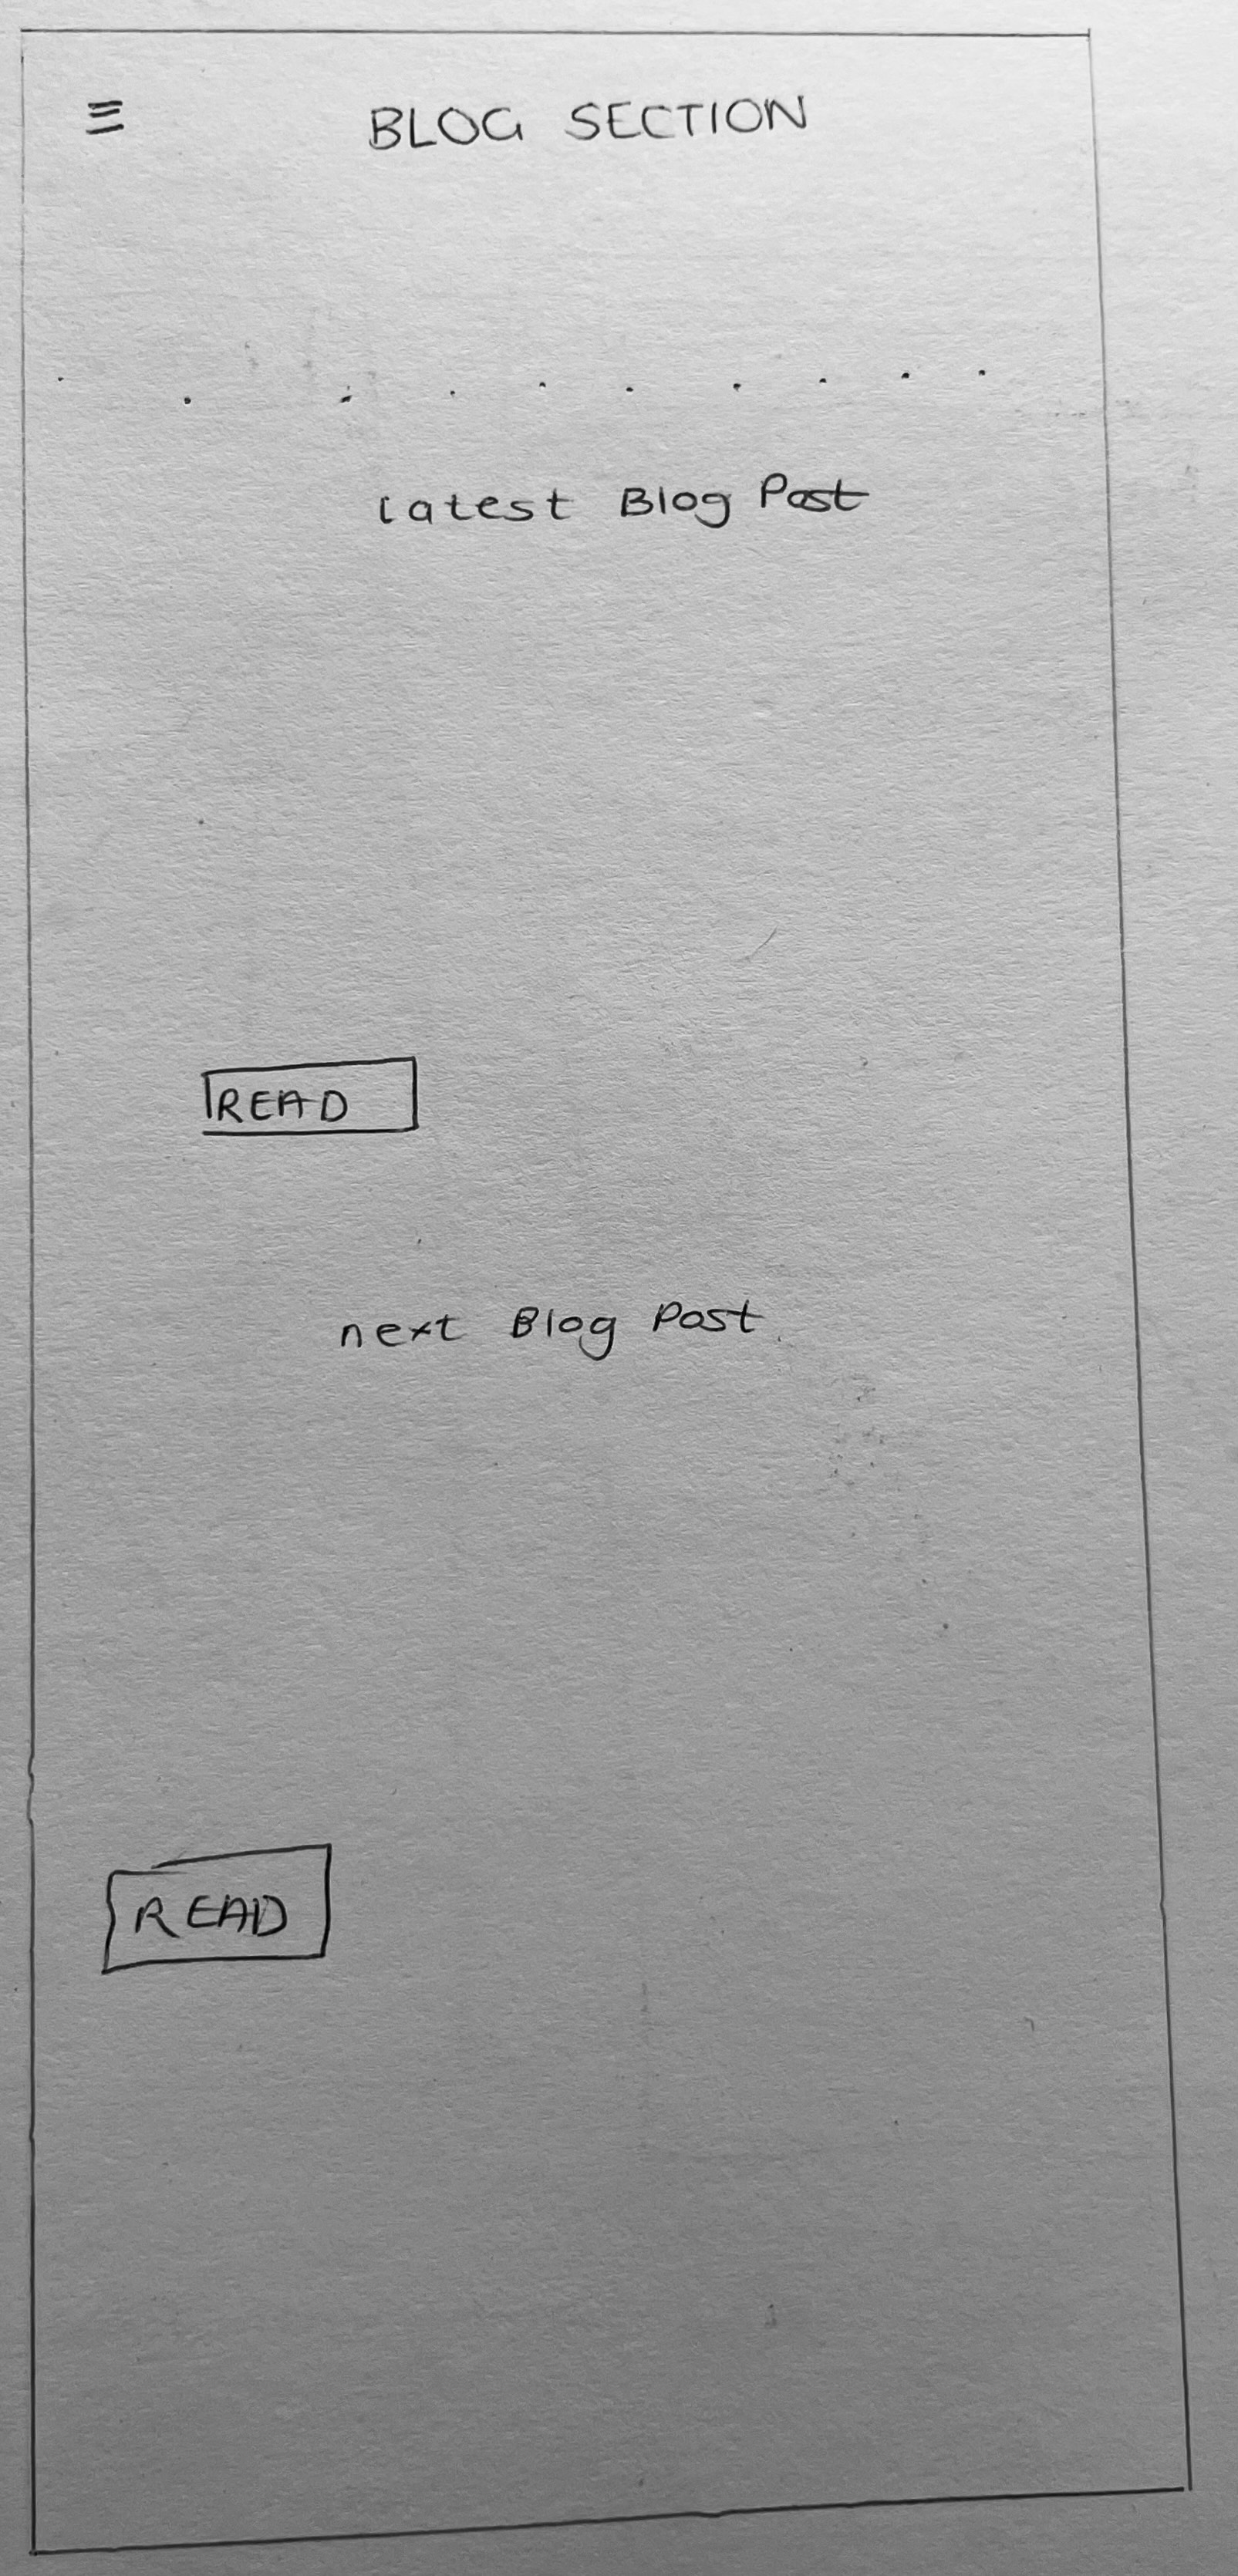 BLOG SECTION
latest Blog Post
READ
next Blog Post
READ